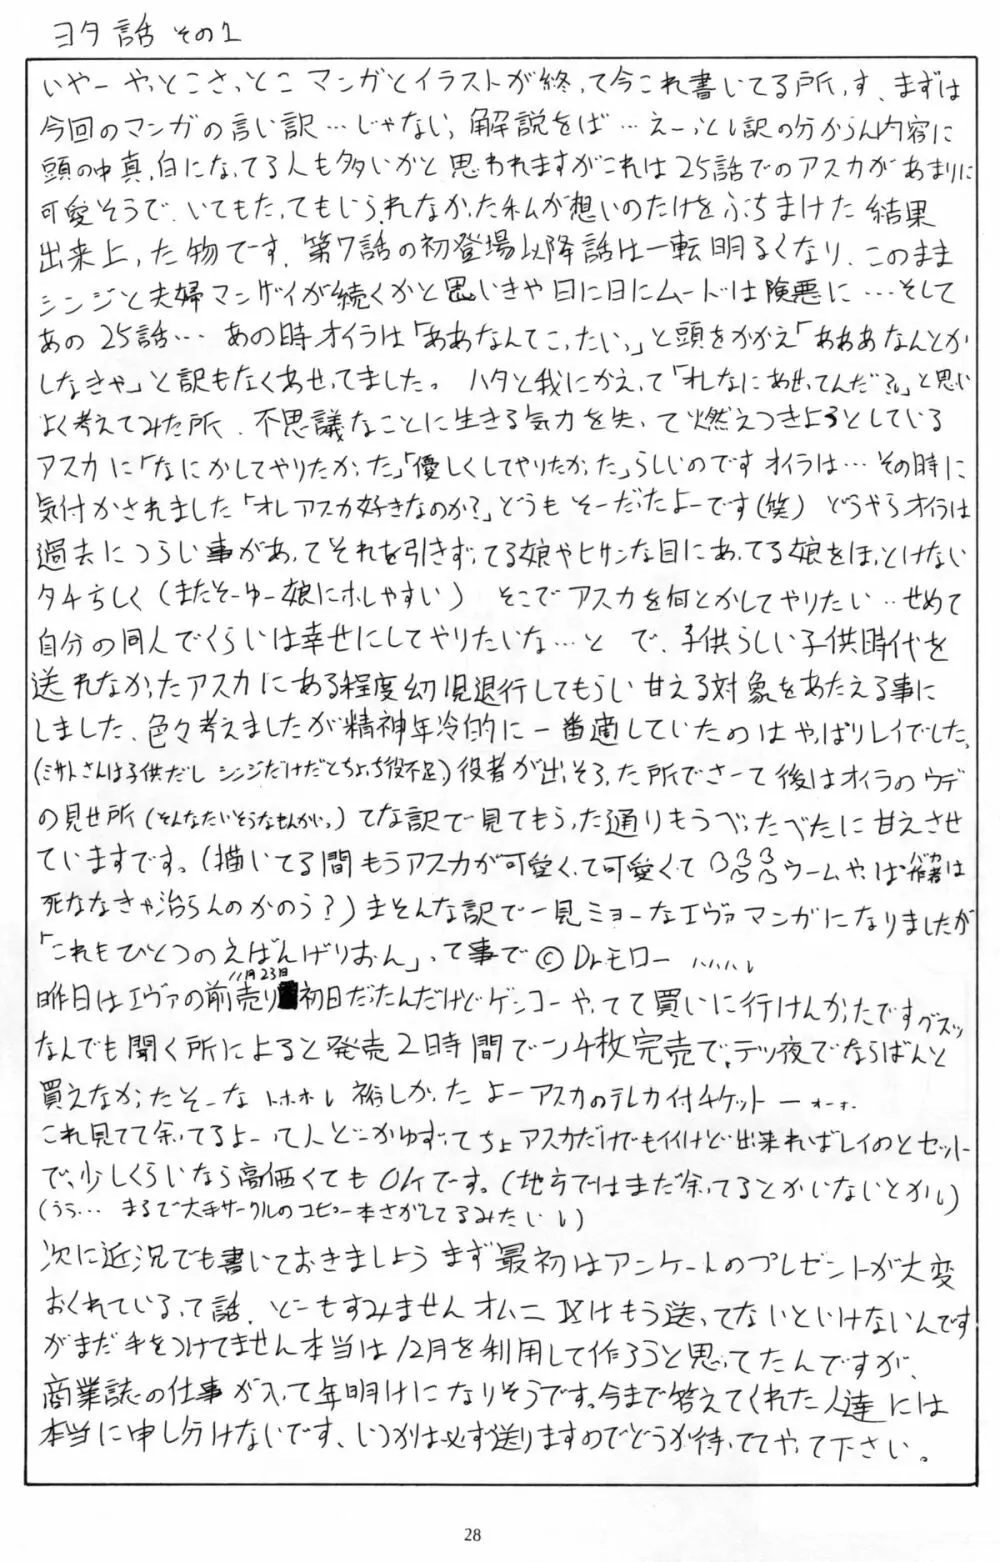 ヨタ話 その1
いやーやっとこさっとこ マンガとイラストが終って今これ書いてる所っす、まずは
今回のマンガの言い訳…じゃない、解説をば…えーっとし訳の分からん内容に
頭の中真っ白になってる人も多いかと思われますがこれは25話でのアスカがあまりに
可愛そうで、いてもたってもいられなかった私が想いのたけをぶちまけた結果
出来上った物です、第7話の初登場以降話は一転明るくなり、このまま
シンジと夫婦マンザイが続くかと思いきや日に日にムードは険悪に…そして
あの25話… あの時オイラは「ああなんてこったいっ」と頭をかかえ「あああなんとか
しなきゃ」と訳もなくあせってました。 ハタと我にかえって「オレなにあせってんだ?」と思い
よく考えてみた所、不思議なことに生きる気力を失って燃えつきようとしている
アスカに「なにかしてやりたかった」「優しくしてやりたかった」らしいのですオイラは… その時に
気付かされました「オレアスカ好きなのか?」どうもそーだったよーです(笑) どうやらオイラは
過去につらい事があってそれを引きずってる娘やヒサンな目にあってる娘をほっとけない
タチらしく(またそーゆー娘にホレやすい) そこでアスカを何とかしてやりたい‥せめて
自分の同人でくらいは幸せにしてやりたいな…と で、子供らしい子供時代を
送れなかったアスカにある程度幼児退行してもらい甘える対象をあたえる事に
しました、色々考えましたが精神年冷的に一番適していたのはやっぱりレイでした。
(ミサトさんは子供だし シンジだけだとちょっち役不足)役者が出そろった所でさーて後はオイラのウデ
の見せ所(そんなたいそうなもんかいっ)てな訳で見てもらった通りもうべったべたに甘えさせ
ていますです。(描いてる間もうアスカが可愛くって可愛くて ウームやっぱ作者バカは
死ななきゃ治らんのかのう?)まそんな訳で一見ミョーなエヴァマンガになりましたが
「これもひとつのえばんげりおん」って事で ©Dr.モロー ハハハハし
昨日はエヴァの前売り11月23日初日だったんだけどゲンコーやってて買いに行けんかったですグスッ
なんでも聞く所によると発売2時間で一ン千枚完売で、テツ夜でならばんと
買えなかったそーな トホホし 裕しかったよーアスカのテレカ付チケットーォーォ.
これ見てて余ってるよーって人どーかゆずってちょアスカだけでもイイけど出来ればレイのとセット
で、少しくらいなら高価くてもOKです。(地方ではまだ余ってるとかいないとかし)
(うう… まるで大手サークルのコピー本さがしてるみたいし)
次に近況でも書いておきましょうまず最初はアンケートのプレゼントが大変
おくれているって話、どーもすみませんオムニⅨはもう送ってないといけないんです
がまだ手をつけてません本当は12月を利用して作ろうと思ってたんですが、
商業誌の仕事が入って年明けになりそうです。今まで答えてくれた人達には
本当に申し分けないです、いつかは必ず送りますのでどうか待っててやって下さい。
28